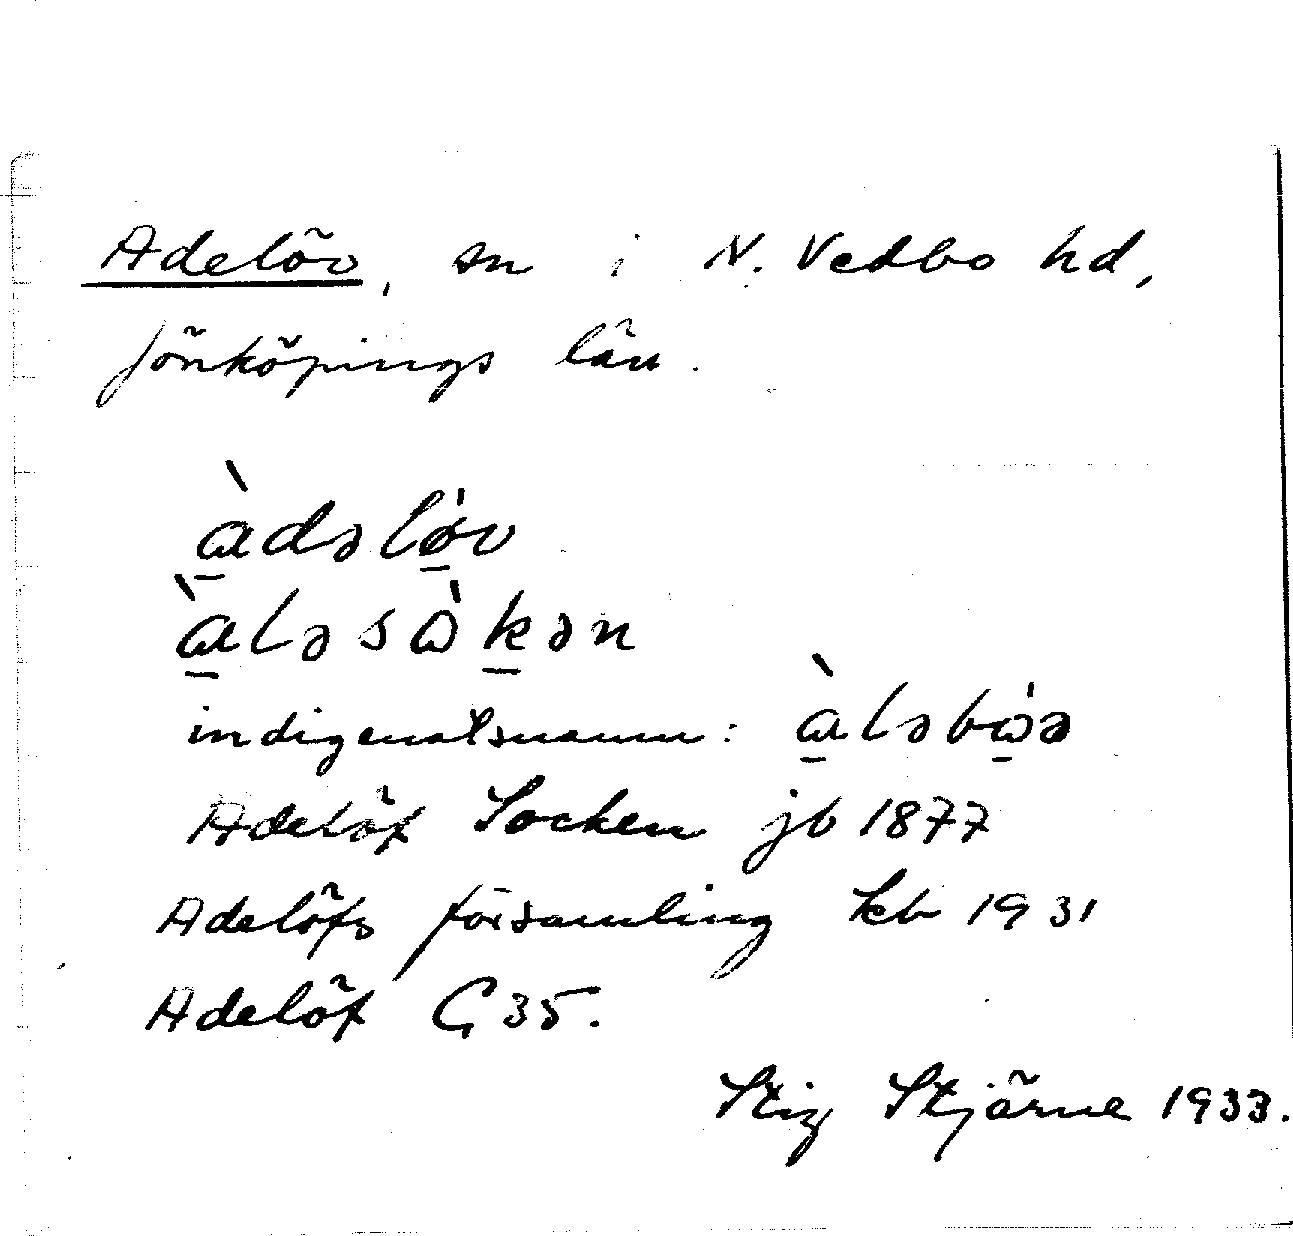 Adelöv, sn i N. Vedbo hd,
Jönköpings län.
àdəløv
àləsòkən
indigenatsnamn: àləbòə
Adelöf Socken jb 1877
Adelöfs församling kb 1931
Adelöf G 35.
Stig Stjärne 1933.